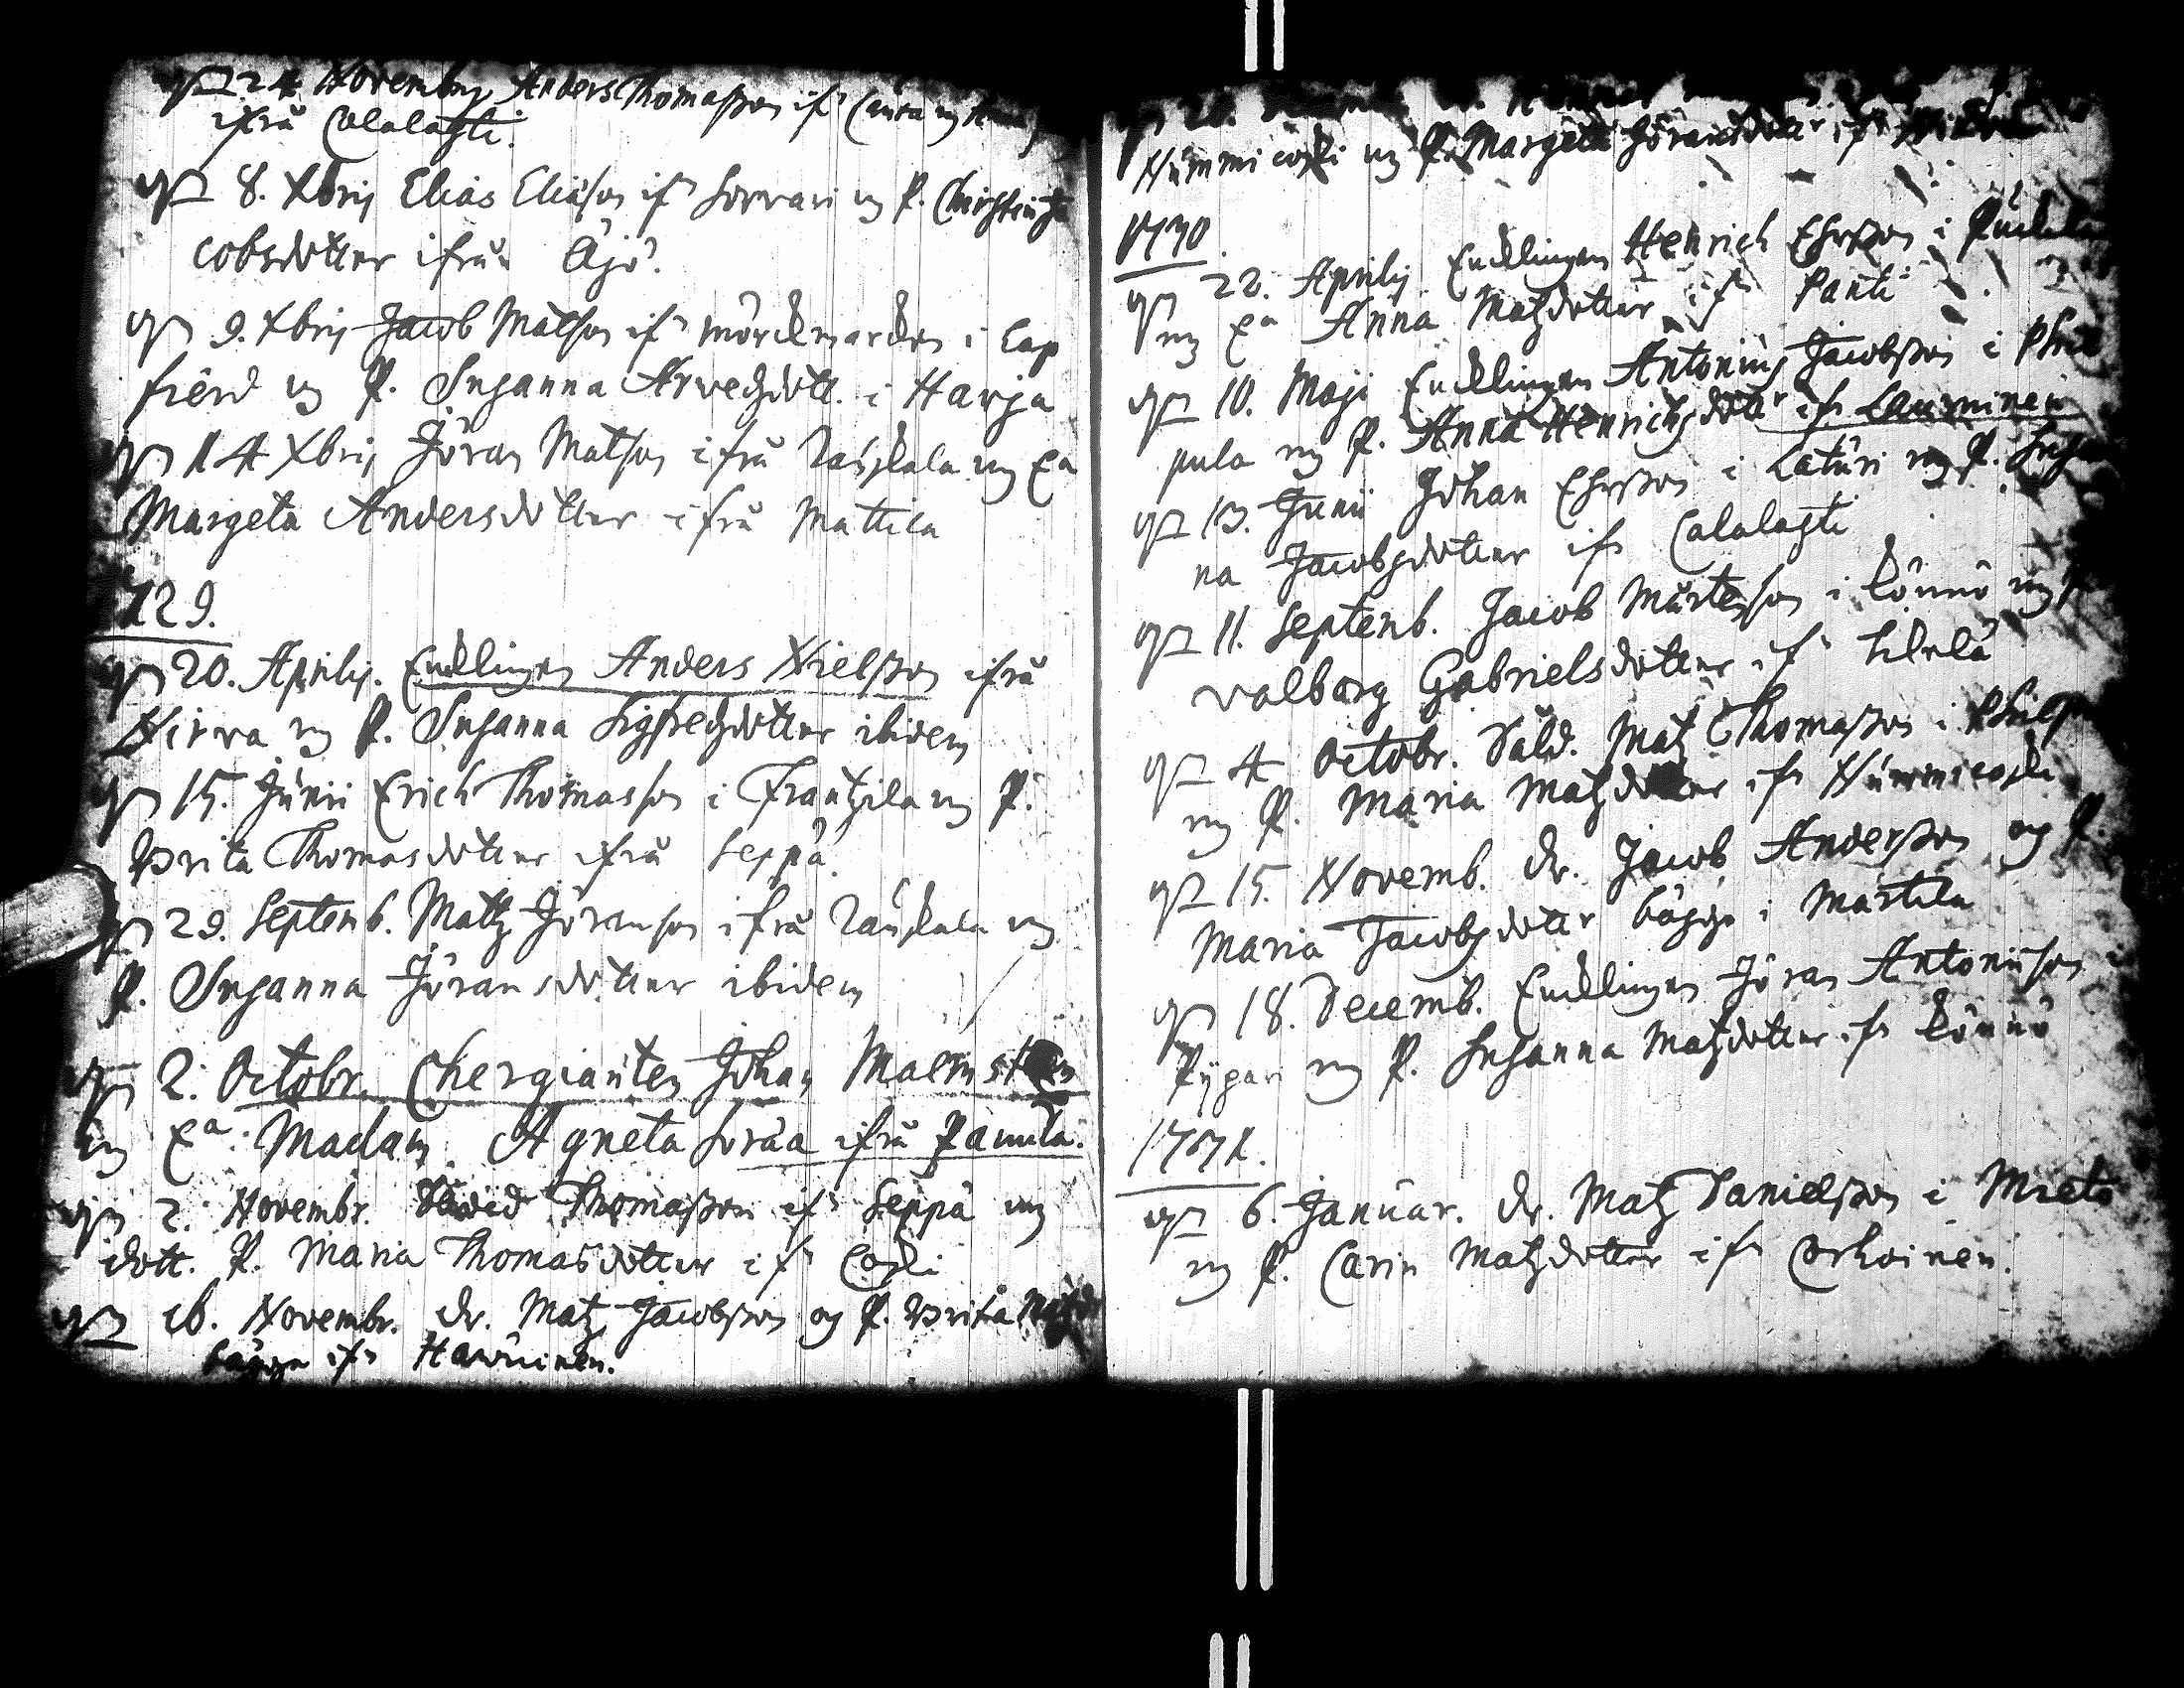 24 Novembr Anders Thomasson if
ifrå Calalaxti.
8. Xbris Elias Eliasson ifr Sorvari m P. Christin Ja
cobsdotter ifrån Äjö.
9. Xbris Jacob Matsson ifr Mörckmarden i Lap
fierd m P. Susanna Arvedzdott. i Harja
14 Xbris Jöran Matsson ifrå Rauskala m Ea
Margeta Andersdotter ifrå Mattila
1729.
20. Aprilis. Encklingen Anders Nielsson ifrå
Nirva m P. Susanna Sigfredzdotter ibidem
15. Junii Erich Thomasson i Frantzila m P.
Brita Thomasdotter ifrå Seppä.
29. Septemb. Mattz Jöransson ifrå Rauskala m
P. Susanna Jöransdotter ibidem
2. Octobr. Chergianten Johan Malmsten
m Ea. Madam Agneta Soraa ifrå Panula.
2. Novembr. David Thomasson ifr Seppä m
dott. P. Maria Thomasdotter ifr Coski
16. Novembr. dr. Matz Jacobsson og P. Brita
bägge ifr Harvinen.
Nummicoski m P. Margeta Jöransdotter ifr
1730.
22. Aprilis Encklingen Henrich Ehrsson i
m Ea Anna Matzdotter ifr Panti
10. Maji Encklingen Antonius Jacobsson i Phil
pula m P. Anna Henrichsdotter ifr Launinen
13. Junii Johan Ehrsson i Laturi m P. Susan
na Jacobsdotter ifr Calalaxti
11. Septemb. Jacob Mårtensson i Könnö m P.
Valborg Gabrielsdotter ifr
4 Octobr. Såld. Matz Thomasson i Philp
m P. Maria Matzdotter ifr Nummicoski
15. Novemb. dr. Jacob Andersson og P.
Maria Jacobsdotter bägge i Martila
18. Decemb. Encklingen Jöran Antoniisson i
Rypari m P. Susanna Matzdotter ifr Könnö
1731.
6. Januar. dr. Matz Danielsson i Mieto
m P. Carin Matzdotter ifr Corhoinen.